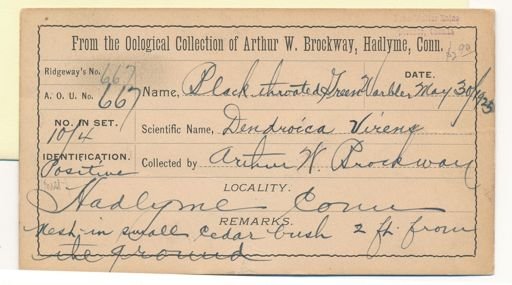 From the Oological Collection of Arthur W. Brockway, Hadlyme, Conn.
Ridgeway's No. 667
A. O. U. No. 667
Name, Black throated Green Warbler
DATE.
May 30/1925
NO. IN SET.
10/4
Scientific Name, Dendroica Virens
IDENTIFICATION.
Positive
Collected by Arthur W Brockway
LOCALITY.
Hadlyme Conn
REMARKS.
Nest in small cedar bush 2 ft. from
the ground